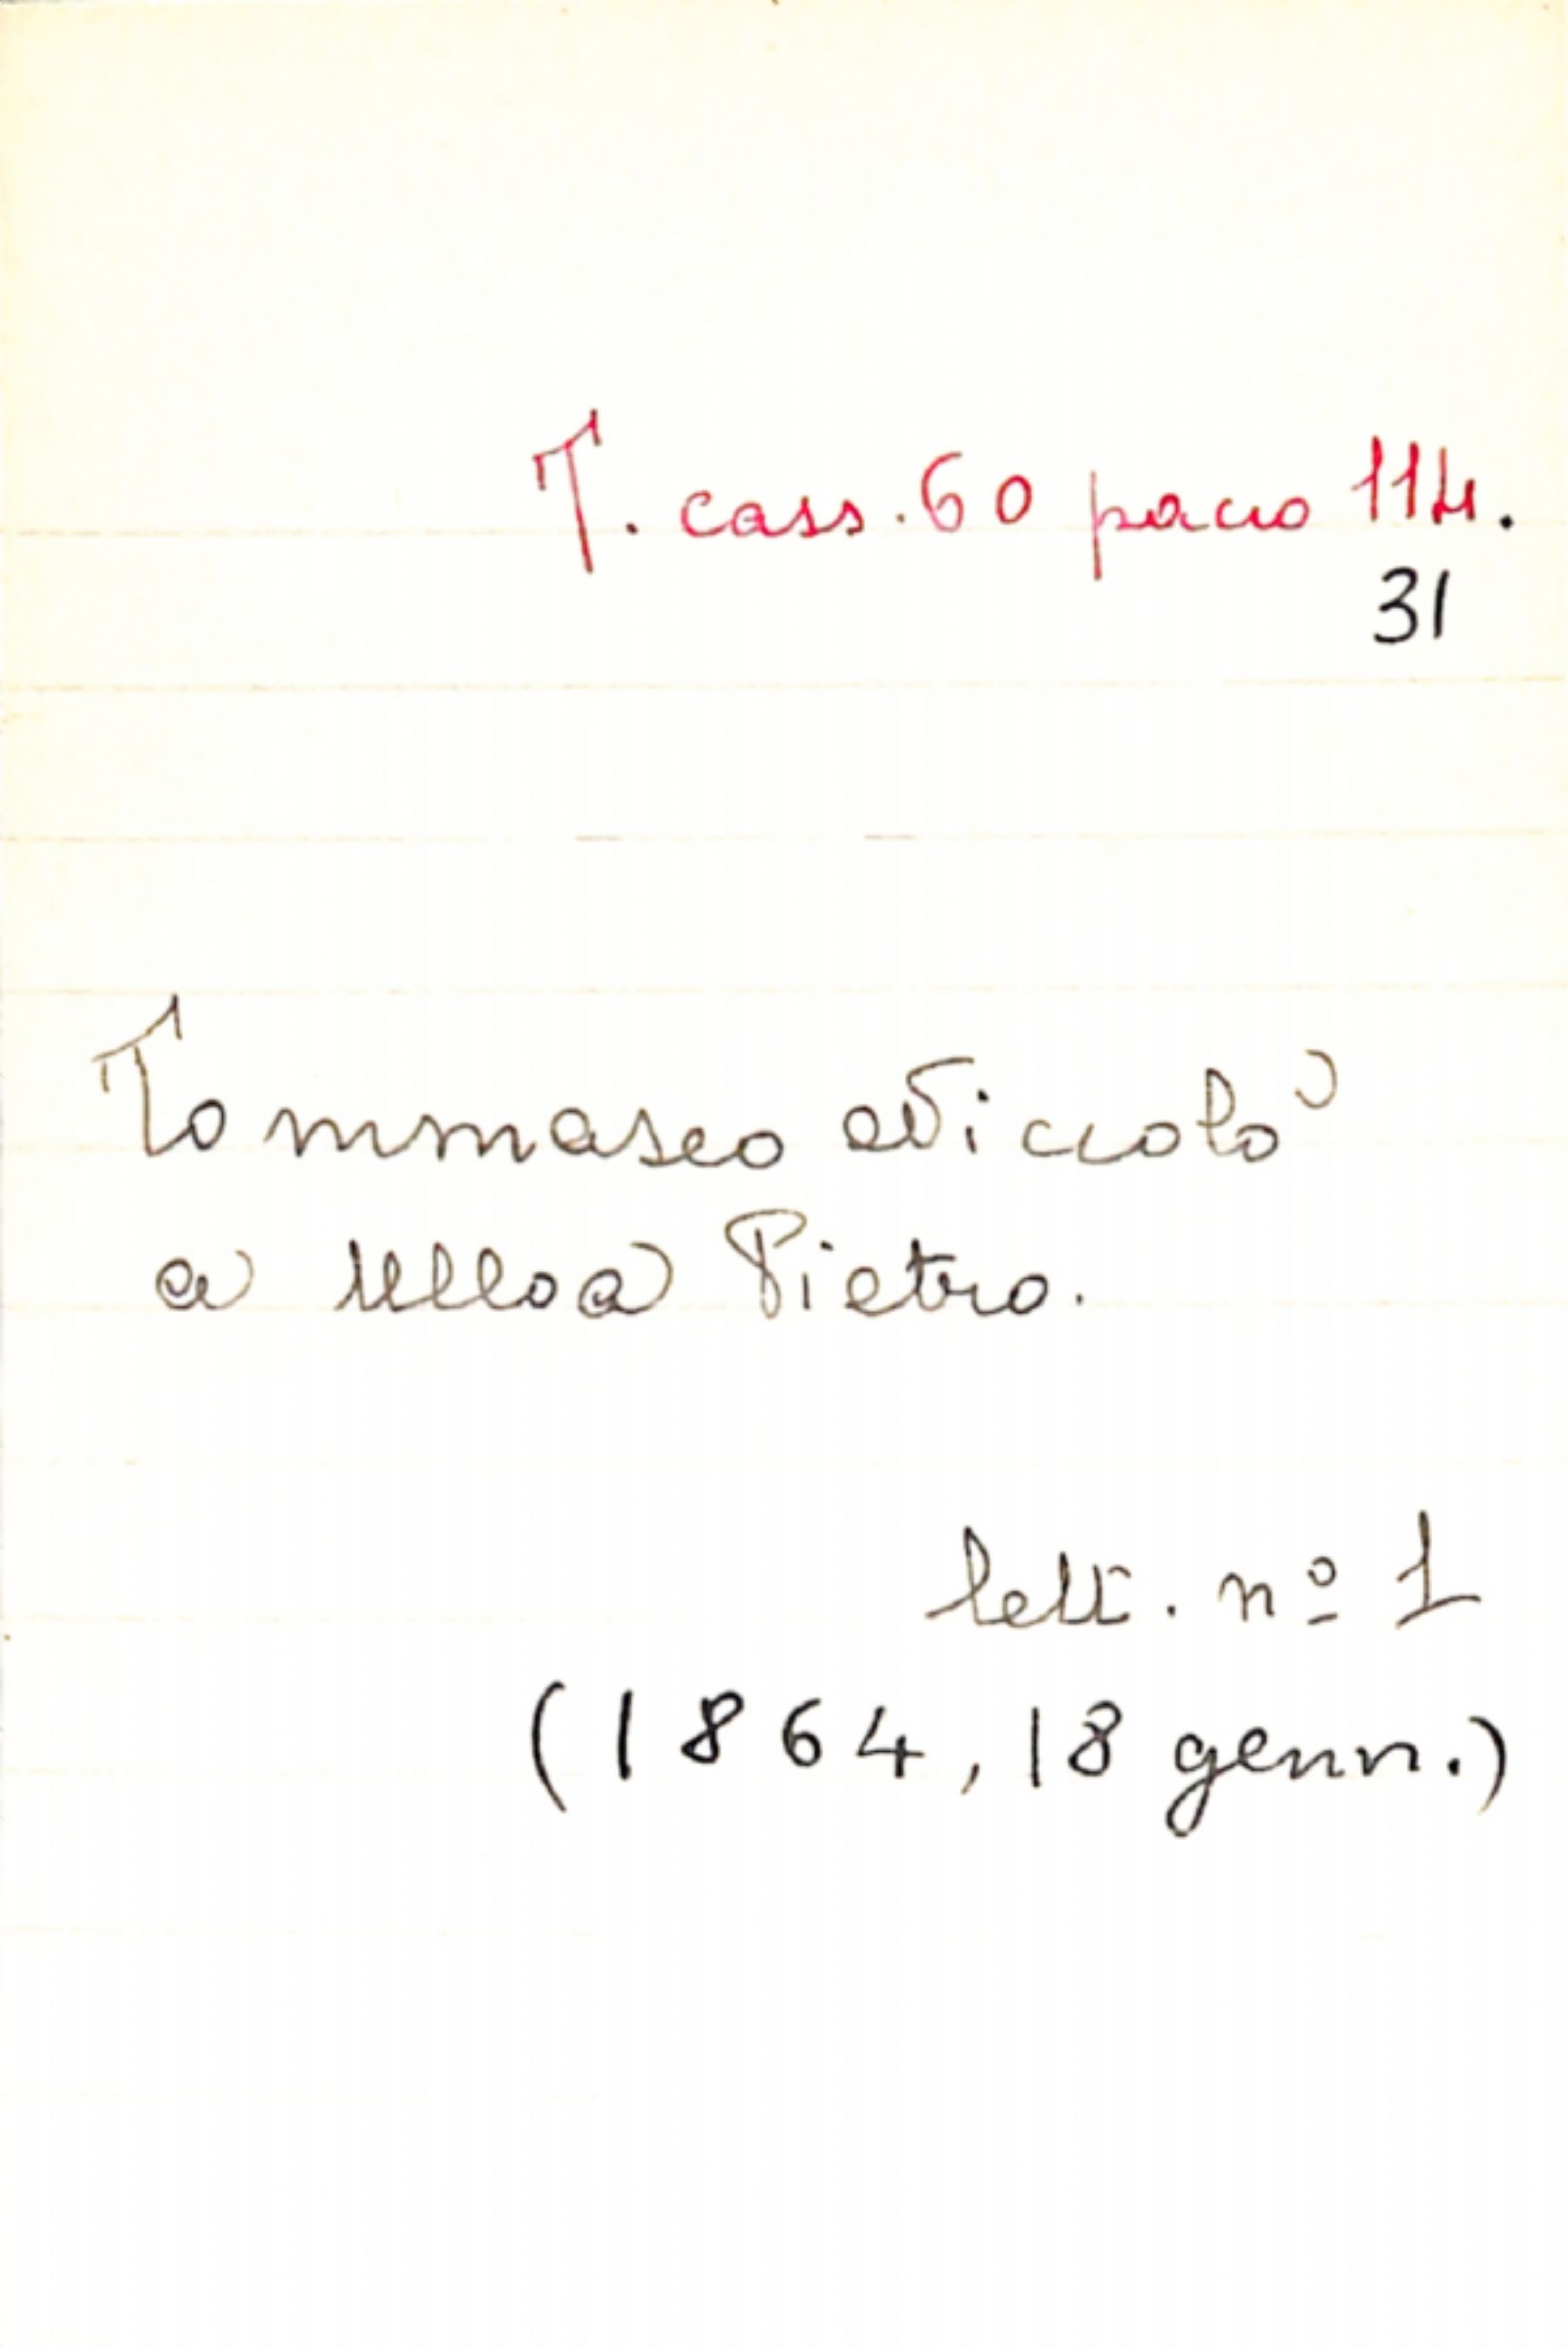 T. cass. 60 pacco 114.
31
Tommaseo Niccolò
a Ulloa Pietro.
lett. nº 1
(1864, 18 genn.)